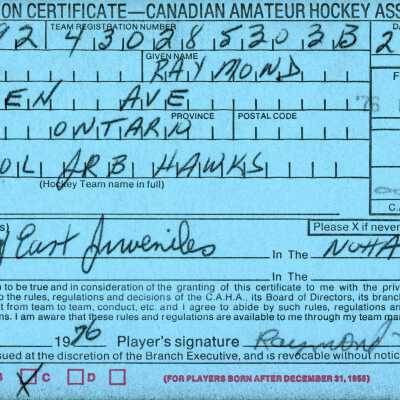 ON CERTIFICATE—CANADIAN AMATEUR HOCKEY ASS
TEAM REGISTRATION NUMBER
92 43028530 3B 2
GIVEN NAME
RAYMOND
EN AVE '76
PROVINCE POSTAL CODE
ONTARIO
OL JRB HAWKS
(Hockey Team name in full) C.A
s) Please X if never
East Juveniles In The NOHA
In The
n to be true and in consideration of the granting of this certificate to me with the privi
to the rules, regulations and decisions of the C.A.H.A., its Board of Directors, its branc
t from team to team, conduct, etc. and I agree to abide by such rules, regulations
ns. I am aware that these rules and regulations are available to me through my team mana
1976 Player's signature Raymond
sued at the discretion of the Branch Executive, and is revocable without notice
B X C D (FOR PLAYERS BORN AFTER DECEMBER 31, 1955)